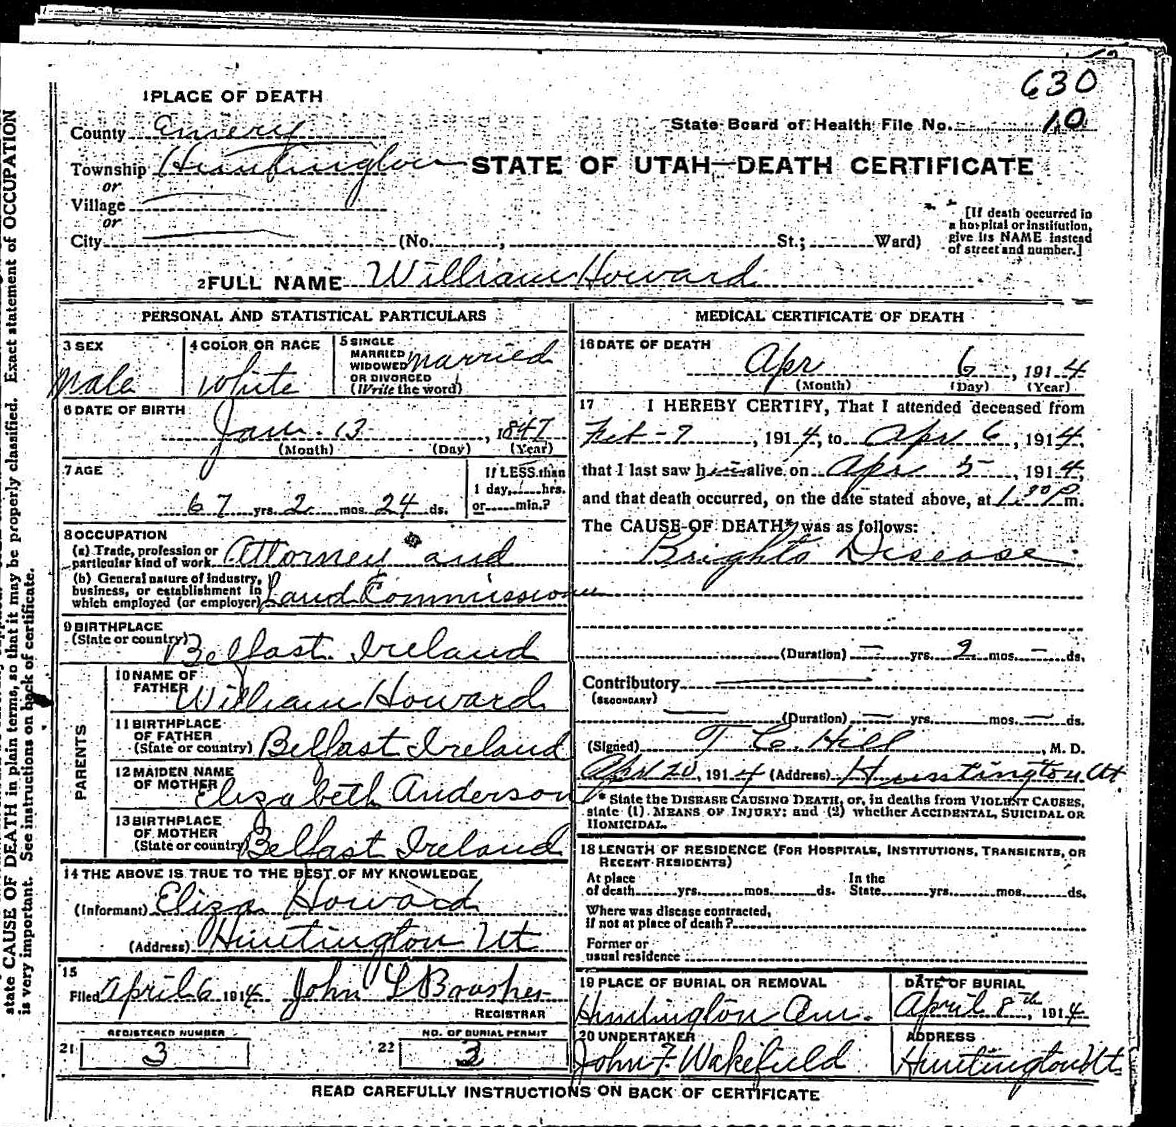 630
1 PLACE OF DEATH
County Emery
State Board of Health File No. 10
Township Huntington
STATE OF UTAH—DEATH CERTIFICATE
or
Village
or
City (No. , St.; Ward)
[If death occurred in
a hospital or institution,
give its NAME instead
of street and number.]
2 FULL NAME William Howard
PERSONAL AND STATISTICAL PARTICULARS
3 SEX
Male
4 COLOR OR RACE
White
5 SINGLE
MARRIED
WIDOWED
OR DIVORCED
(Write the word)
Married
6 DATE OF BIRTH
Jan. 13 , 1847
(Month) (Day) (Year)
7 AGE
67 yrs. 2 mos. 24 ds.
If LESS than
1 day, hrs.
or min.?
8 OCCUPATION
(a) Trade, profession or
particular kind of work Attorney and
(b) General nature of industry,
business, or establishment in
which employed (or employer) Land Commissioner
9 BIRTHPLACE
(State or country) Belfast Ireland
PARENTS
10 NAME OF
FATHER William Howard
11 BIRTHPLACE
OF FATHER
(State or country) Belfast Ireland
12 MAIDEN NAME
OF MOTHER Elizabeth Anderson
13 BIRTHPLACE
OF MOTHER
(State or country) Belfast Ireland
14 THE ABOVE IS TRUE TO THE BEST OF MY KNOWLEDGE
(Informant) Eliza Howard
(Address) Huntington Ut
15
Filed April 6 1914 John L
REGISTRAR
REGISTERED NUMBER
21 3
NO. OF BURIAL PERMIT
22 3
MEDICAL CERTIFICATE OF DEATH
16 DATE OF DEATH
Apr 6 , 1914
(Month) (Day) (Year)
17 I HEREBY CERTIFY, That I attended deceased from
Feb - 7 , 1914, to Apr 6, 1914,
that I last saw him alive on Apr 5 , 1914,
and that death occurred, on the date stated above, at 1.00 P m.
The CAUSE OF DEATH* was as follows:
Brights Disease
(Duration) — yrs. 2 mos. — ds.
Contributory
(SECONDARY)
(Duration) — yrs. mos. — ds.
(Signed) T C Hill , M. D.
Apr 20, 1914 (Address) Huntington Ut
* State the DISEASE CAUSING DEATH, or, in deaths from VIOLENT CAUSES,
state (1) MEANS OF INJURY; and (2) whether ACCIDENTAL, SUICIDAL OR
HOMICIDAL.
18 LENGTH OF RESIDENCE (FOR HOSPITALS, INSTITUTIONS, TRANSIENTS, OR
RECENT RESIDENTS)
At place
of death yrs. mos. ds.
In the
State yrs. mos. ds.
Where was disease contracted,
if not at place of death?
Former or
usual residence
19 PLACE OF BURIAL OR REMOVAL
Huntington
DATE OF BURIAL
April 8th, 1914
20 UNDERTAKER
John F. Wakefield
ADDRESS
Huntington Ut
READ CAREFULLY INSTRUCTIONS ON BACK OF CERTIFICATE
state CAUSE OF DEATH in plain terms, so that it may be properly classified. Exact statement of OCCUPATION
is very important. See instructions on back of certificate.